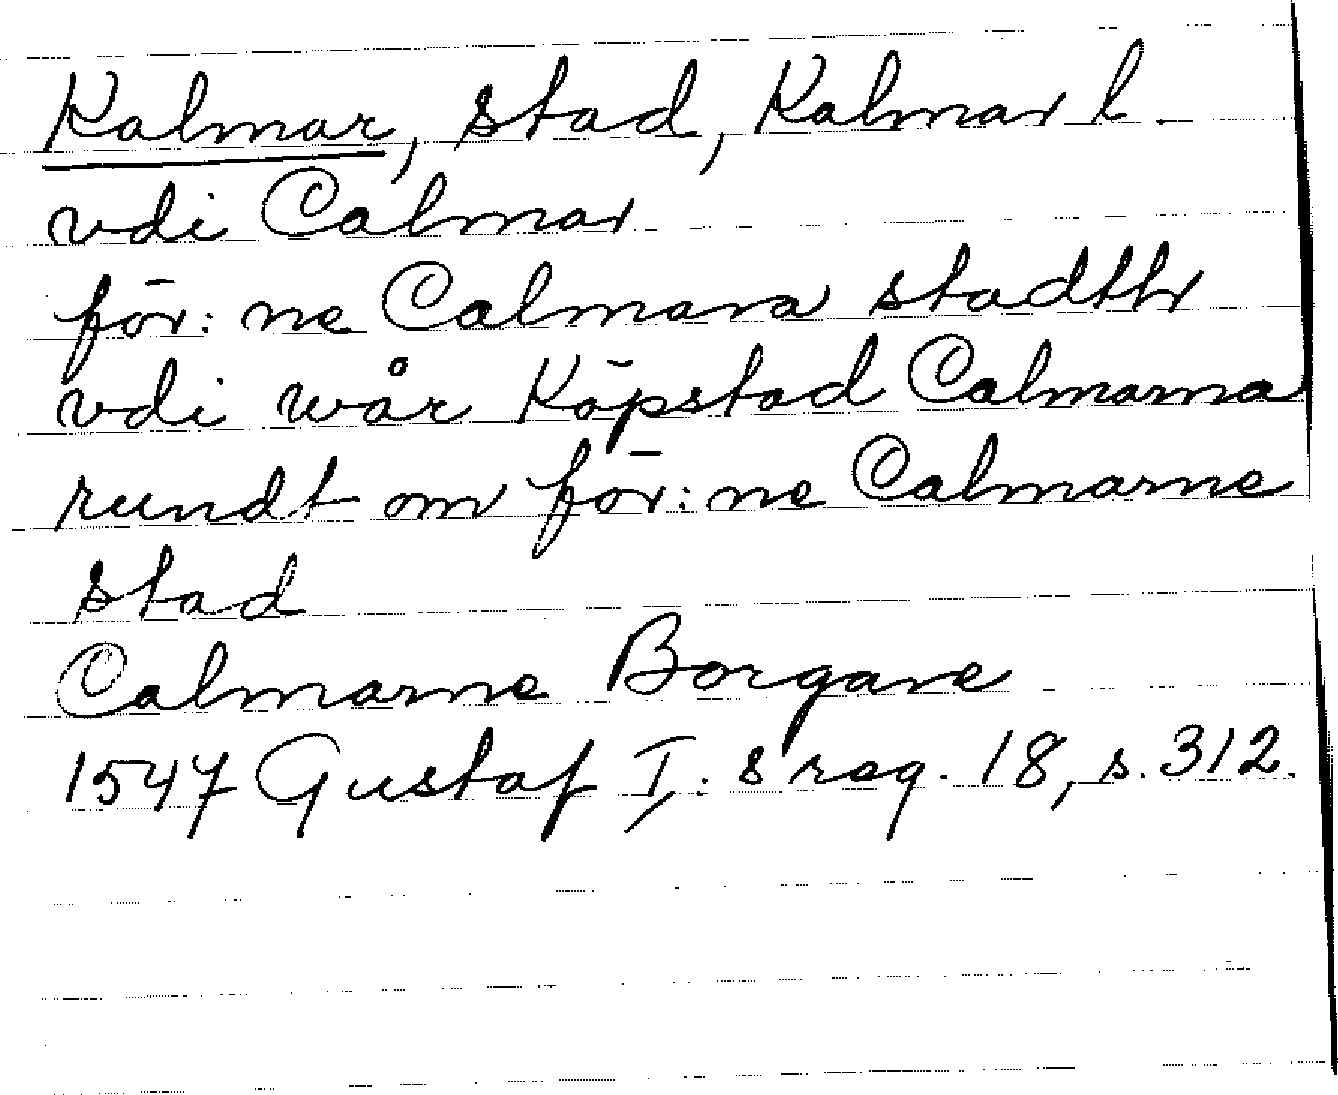 Kalmar, stad, Kalmar l.
vdi Calmar
för: ne Calmara stadthr
vdi wår Köpstad Calmarna
rundt om för: ne Calmarne
stad
Calmarne Borgare
1547 Gustaf I: s reg. 18, s. 312.